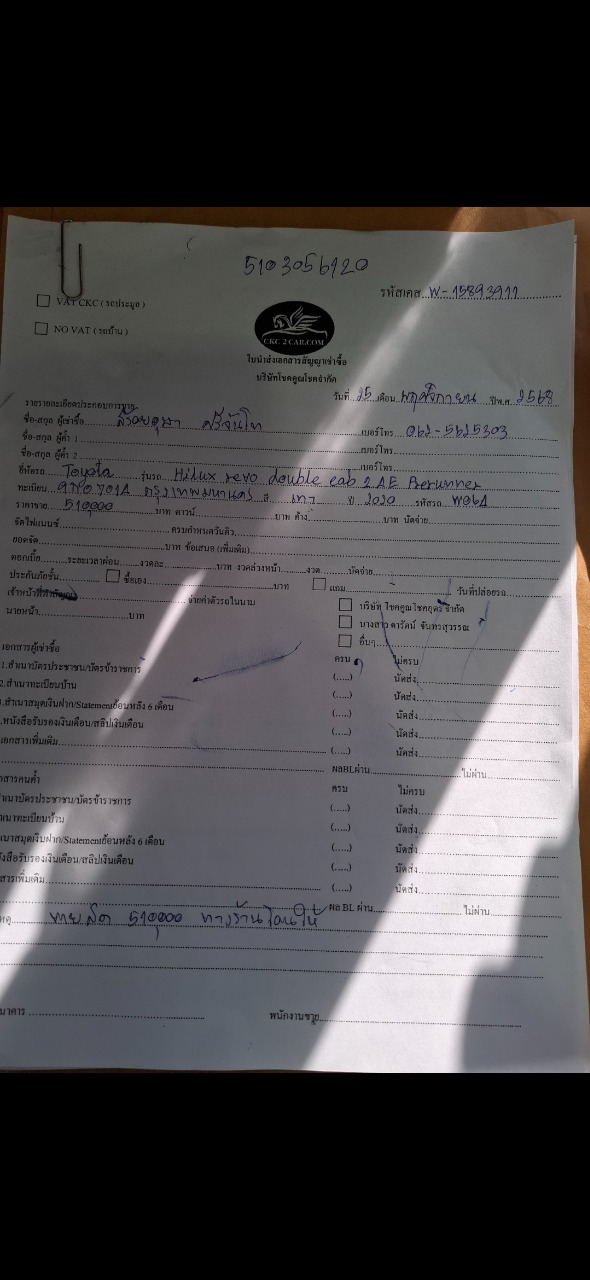 5103056120
รหัสเคส W-15893911
VAT CKC ( รถประมูล )
NO VAT ( รถบ้าน )
CKC 2 CAR.COM
ใบนำส่งเอกสารสัญญาเช่าซื้อ
บริษัทโชคคูณโชคจำกัด
วันที่ 25 เดือน พฤศจิกายน ปีพ.ศ. 2568
รายรายละเอียดประกอบการขาย
ชื่อ-สกุล ผู้เช่าซื้อ ศรีจันโท เบอร์โทร 062-5625303
ชื่อ-สกุล ผู้ค้ำ 1 เบอร์โทร
ชื่อ-สกุล ผู้ค้ำ 2 เบอร์โทร
ยี่ห้อรถ Toyota รุ่นรถ Hilux revo double cab 2.4E Prerunner
ทะเบียน 7014 กรุงเทพมหานคร สี เทา ปี 2020 รหัสรถ W061
ราคาขาย 510,000 บาท ดาวน์ บาท ค้าง บาท นัดจ่าย
จัดไฟแนนซ์ ครบกำหนดวันคิว
ยอดจัด บาท ข้อเสนอ (เพิ่มเติม)
ดอกเบี้ย ระยะเวลาผ่อน งวดละ บาท งวดล่วงหน้า งวด นัดจ่าย
ประกันภัยชั้น ซื้อเอง บาท แถม วันที่ปล่อยรถ
เจ้าหน้าที่ทำสัญญา จ่ายค่าตัวรถในนาม บริษัท โชคคูณโชค จำกัด
นายหน้า บาท บางสาว ดารัตน์ จันทรสุวรรณ
อื่นๆ
เอกสารผู้เช่าซื้อ ครบ ไม่ครบ
1.สำเนาบัตรประชาชน/บัตรข้าราชการ (.....) นัดส่ง
2.สำเนาทะเบียนบ้าน (.....) นัดส่ง
.สำเนาสมุดเงินฝาก/Statementย้อนหลัง 6 เดือน (.....) นัดส่ง
.หนังสือรับรองเงินเดือน/สลิปเงินเดือน (.....) นัดส่ง
เอกสารเพิ่มเติม (.....) นัดส่ง
ผลBLผ่าน ไม่ผ่าน
กสารคนค้ำ ครบ ไม่ครบ
าเนาบัตรประชาชน/บัตรข้าราชการ (.....) นัดส่ง
าเนาทะเบียนบ้าน (.....) นัดส่ง
าเนาสมุดเงินฝาก/Statementย้อนหลัง 6 เดือน (.....) นัดส่ง
ังสือรับรองเงินเดือน/สลิปเงินเดือน (.....) นัดส่ง
สารเพิ่มเติม (.....) นัดส่ง
ผล BL ผ่าน ไม่ผ่าน
หตุ ขายสด 510,000 ทางร้านโอนให้
นาคาร พนักงานขาย